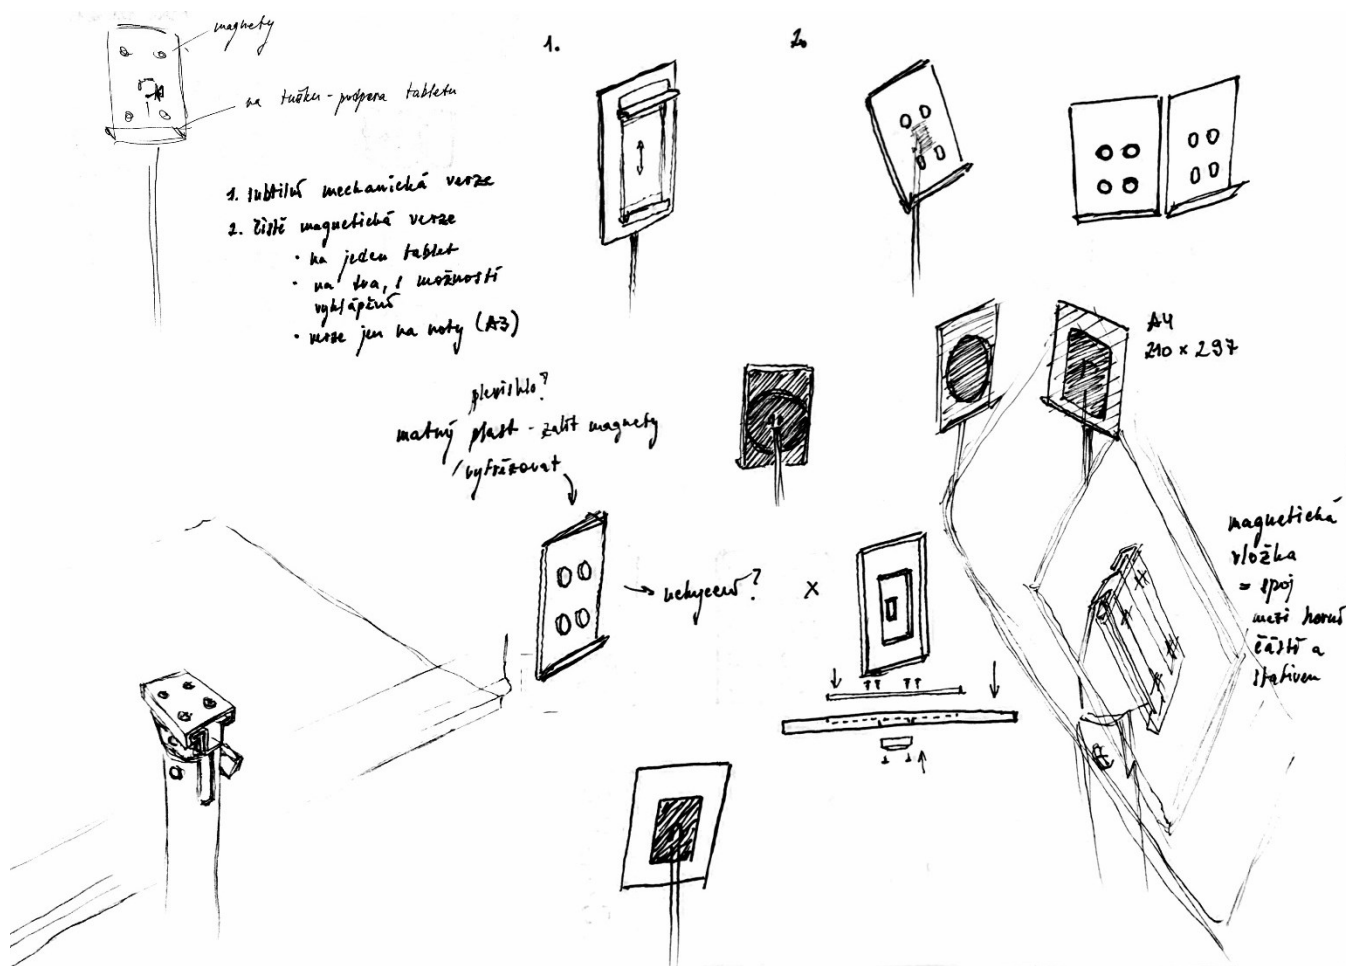 magnety
na tužku - podpera tabletu
1.
2.
1. subtilní mechanická verze
2. čistě magnetická verze
• na jeden tablet
• na dva, s možností
vyklápění
• verze jen na noty (A3)
A4
210 × 297
plexisklo?
matný plast - zalít magnety
/ vyfrézovat
nehycení?
X
magnetická
vložka
= spoj
mezi horní
částí a
stativem